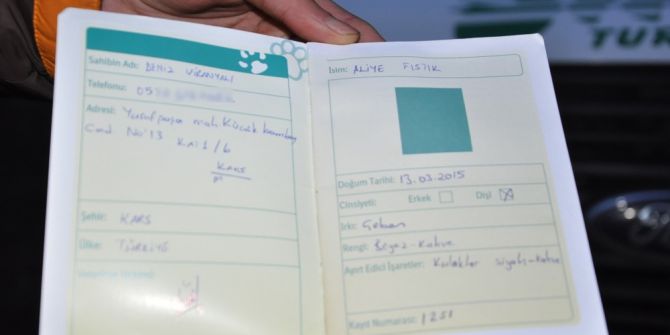 TUR
Sahibin Adı: DENİZ VİRANYALI
Telefonu: 05
Adresi: Yusufpaşa mah. Küçük
Cad No: 13 Kat 1/6
KARS
Şehir: KARS
Ülke: TÜRKİYE
İsim: ALİYE FISTIK
Doğum Tarihi: 13.03.2015
Cinsiyeti: Erkek Dişi
Irkı:
Rengi: Beyaz-Kahve
Ayırt Edici İşaretler: Kulaklar siyah-kahve
Kayıt Numarası: 1251